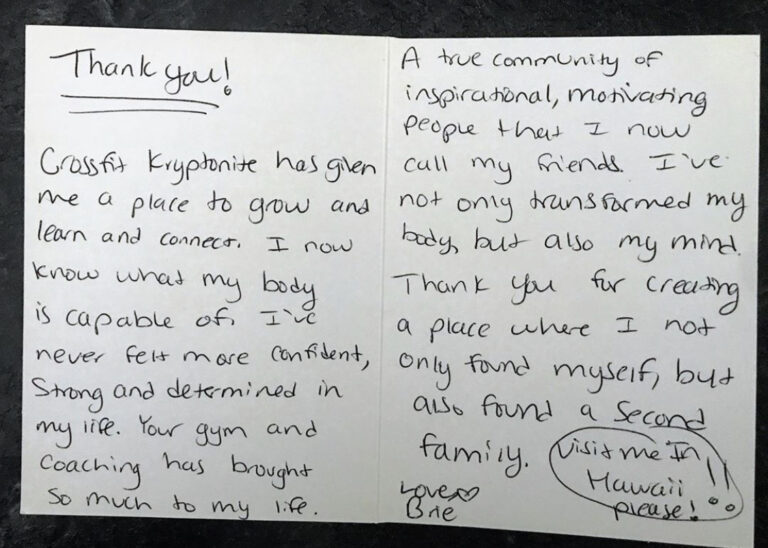 Thank you!
Crossfit Kryptonite has given
me a place to grow and
learn and connect. I now
know what my body
is capable of. I've
never felt more confident,
Strong and determined in
my life. Your gym and
coaching has brought
so much to my life.
A true community of
inspirational, motivating
people that I now
call my friends. I've
not only transformed my
body, but also my mind.
Thank you for creating
a place where I not
only found myself, but
also found a second
family.
Love
Brie
Visit me In
Hawaii
please!!!